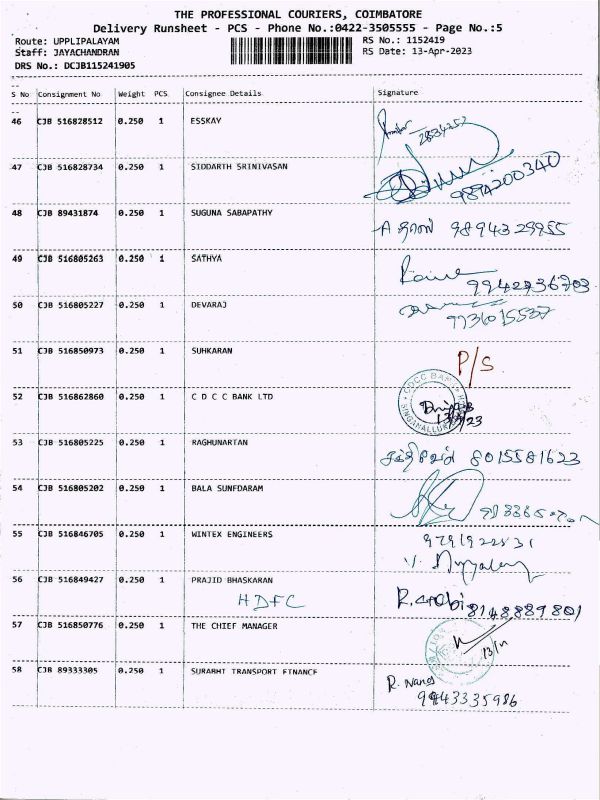 THE PROFESSIONAL COURIERS, COIMBATORE
Delivery Runsheet - PCS - Phone No.:0422-3505555 - Page No.:5
Route: UPPLIPALAYAM RS No.: 1152419
Staff: JAYACHANDRAN RS Date: 13-Apr-2023
DRS No.: DCJB115241905
S No Consignment No Weight PCS Consignee Details Signature
46 CJB 516828512 0.250 1 ESSKAY
47 CJB 516828734 0.250 1 SIDDARTH SRINIVASAN 9894200340
48 CJB 89431874 0.250 1 SUGUNA SABAPATHY 9894329955
49 CJB 516805263 0.250 1 SATHYA 9942236703
50 CJB 516805227 0.250 1 DEVARAJ
51 CJB 516850973 0.250 1 SUHKARAN P/S
52 CJB 516862860 0.250 1 C D C C BANK LTD
53 CJB 516805225 0.250 1 RAGHUNARTAN 8015581623
54 CJB 516805202 0.250 1 BALA SUNFDARAM
55 CJB 516846705 0.250 1 WINTEX ENGINEERS
56 CJB 516849427 0.250 1 PRAJID BHASKARAN 8148889801
HDFC
57 CJB 516850776 0.250 1 THE CHIEF MANAGER
58 CJB 89333305 0.250 1 SURABHT TRANSPORT FINANCE
9443335986